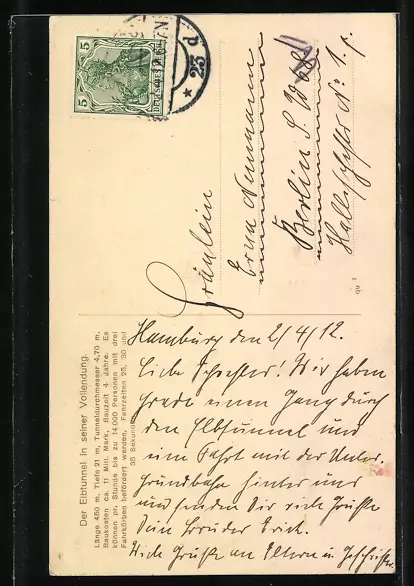 Der Elbtunnel in seiner Vollendung.
Länge 450 m, Tiefe 21 m, Tunneldurchmesser 4,70 m.
Baukosten ca. 11 Mill. Mark, Bauzeit 4 Jahre. Es
können pr. Stunde bis zu 14000 Personen mit drei
Fahrkörben befördert werden. Fahrzeiten 25, 30 und
35 Sekunden
Hamburg den 2/4/12.
Liebe Schwester! Wir haben
grade einen Gang durch
den Elbtunnel und
eine Fahrt mit der Unter
grundbahn hinter uns
und senden Dir viele Grüsse
Dein Bruder Erich.
Viele Grüsse an Eltern u. Geschwister
5
DEUTSCHES REICH
5
* 23 b
Fräulein
Erna Neumann
Berlin S.W. 68
Hallesche No 1. p.
qu